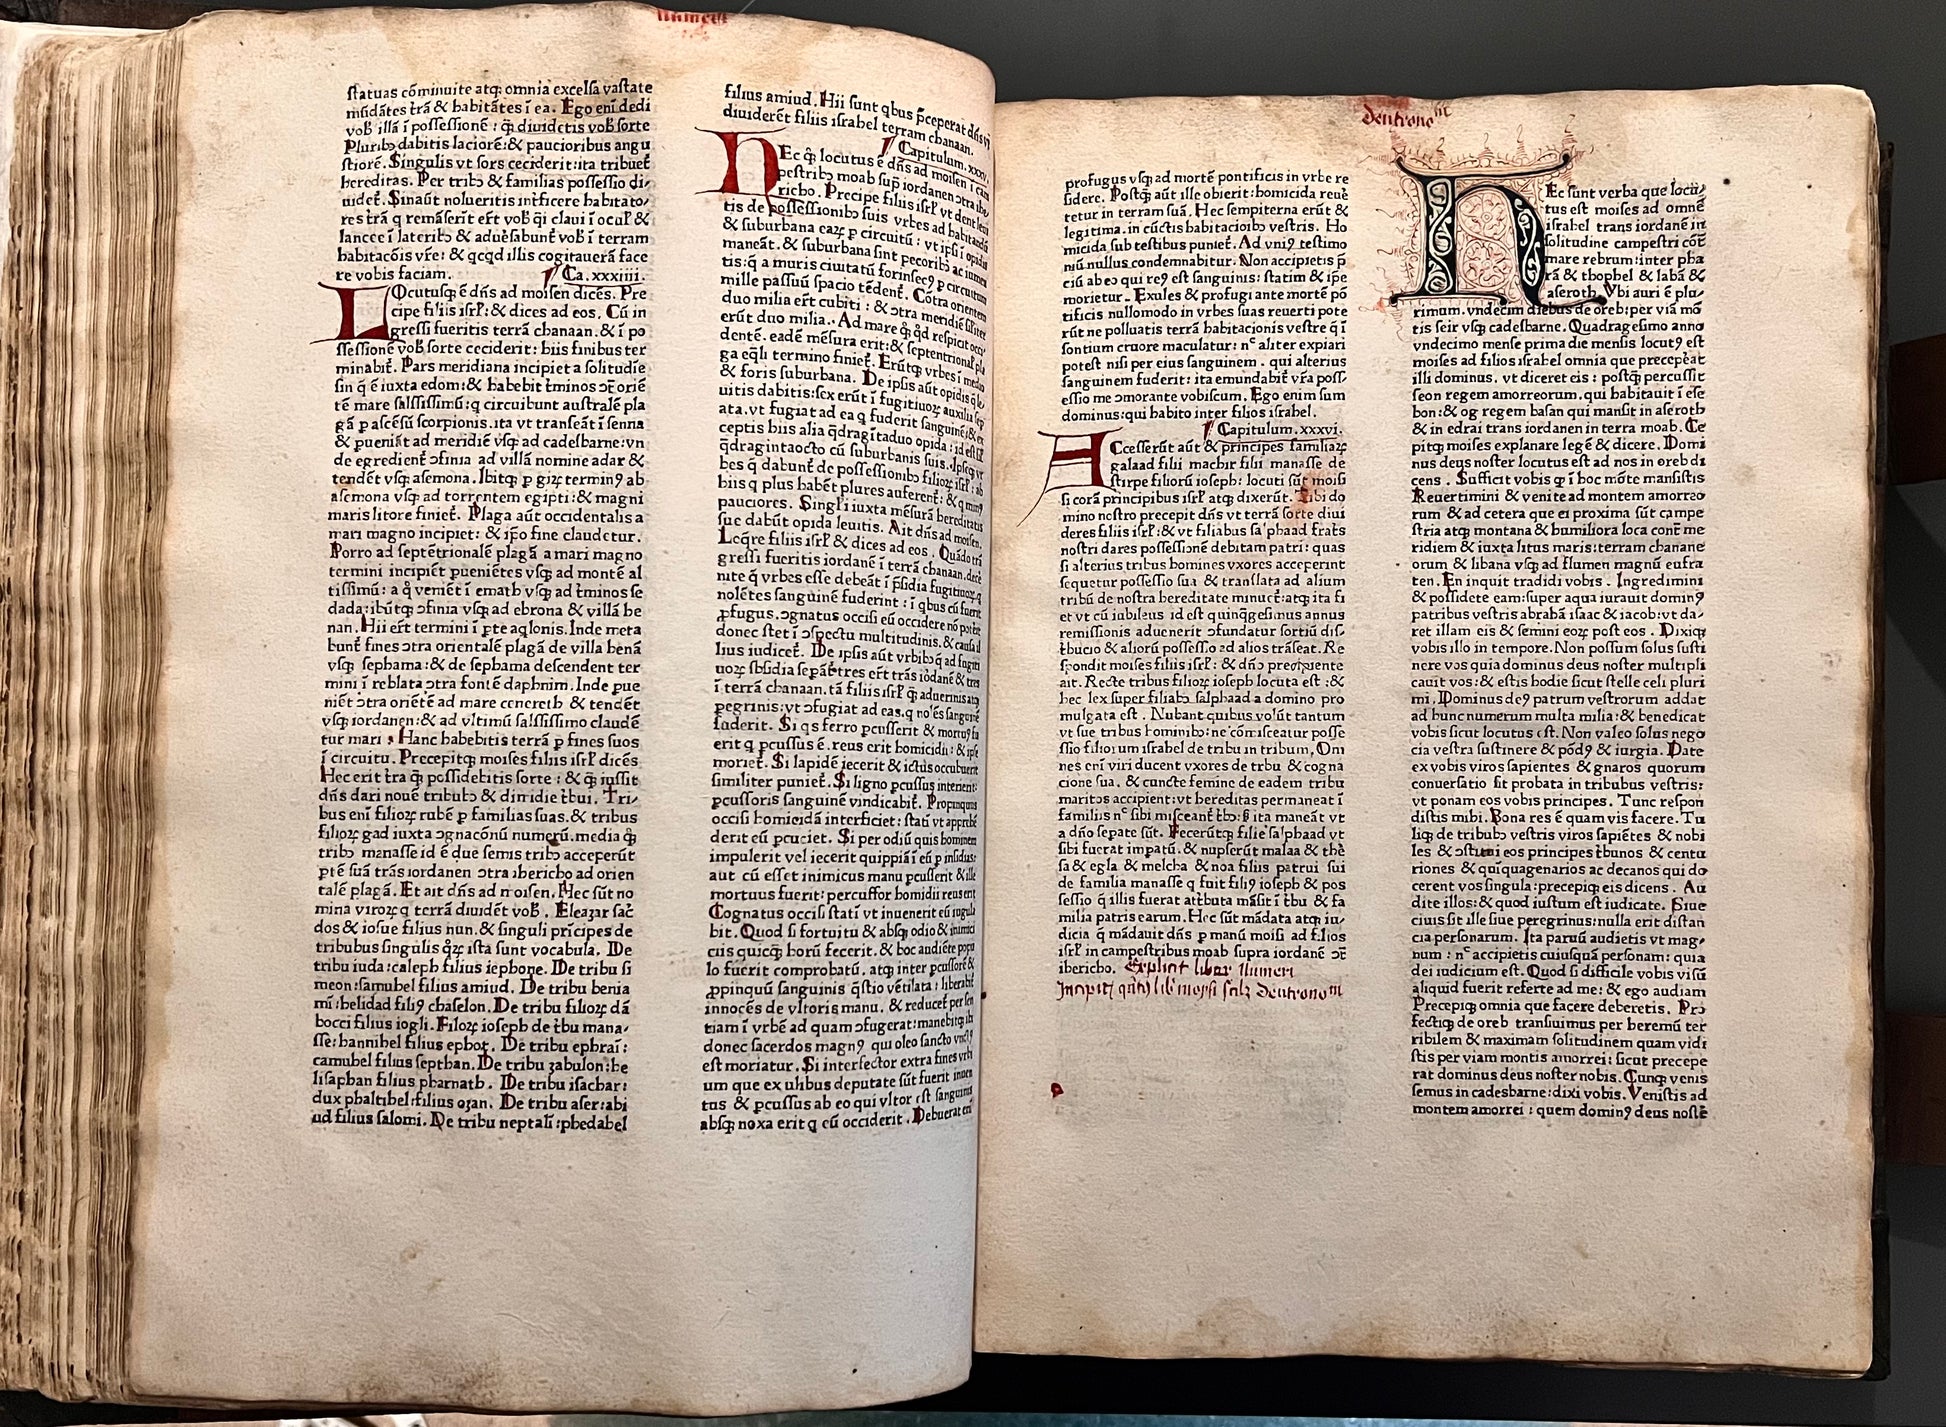 numeri
statuas cõminuite atqꝫ omnia excelsa vastate
mũdãtes trã & habitãtes ĩ ea. Ego eni dedi
vob̃ illã ĩ possessionẽ : q̃ diuidetis vob̃ sorte
Pluribꝰ dabitis laciorẽ:& paucioribus angu
stiorẽ. Singulis vt sors ceciderit:ita tribuet̃
hereditas. Per tribꝰ & familias possessio di/
uidet̃. Sinaũt nolueritis inťficere habitato/
res trã q remãserit ert̃ vob̃ q̃i claui ĩ ocul̃ &
lancee ĩ lateribꝰ & aduẽsabunt̃ vob̃ ĩ terram
habitacõis vr̃e: & qcqd illis cogitauerã face
re vobis faciam. Ca.xxxiiii.
LOcutusqꝫ ẽ dñs ad moisen dicẽs. Pre
cipe filiis isrl̃:& dices ad eos. Cũ in
gressi fueritis terrã chanaan.& ĩ po
ssessionẽ vob̃ sorte ceciderit: hiis finibus ter
minabit̃. Pars meridiana incipiet a solitudie
sin q̃ ẽ iuxta edom:& habebit t̃minos ↄt̃ oriẽ
tẽ mare salsissimũ:q circuibunt australẽ pla
gã p ascẽsũ scorpionis.ita vt transeãt ĩ senna
& pueniãt ad meridiẽ vsqꝫ ad cadesbarne:vn
de egredient̃ ↄfinia ad villã nomine adar &
tendẽt vsqꝫ asemona. Ibitqꝫ p girꝫ terminꝰ ab
asemona vsqꝫ ad torrentem egipti:& magni
maris litore finiet̃. Plaga aũt occidentalis a
mari magno incipiet: & ip̃o fine claudetur.
Porro ad septẽtrionalẽ plagã a mari magno
termini incipiẽt pueniẽtes vsqꝫ ad montẽ al
tissimũ: a q̃ veniẽt ĩ emath vsqꝫ ad t̃minos se
dada:ibũtqꝫ ↄfinia vsqꝫ ad ebrona & villã he
nan. Hii ert̃ termini ĩ pte aqlonis. Inde meta
bunt̃ fines ↄtra orientalẽ plagã de villa henã
vsqꝫ sephama:& de sephama descendent ter
mini ĩ reblata ↄtra fontẽ daphnim. Inde pue
niẽt ↄtra oriẽtẽ ad mare cenereth & tendẽt
vsqꝫ iordanen:& ad vltimũ salsissimo claudẽ
tur mari : Hanc habebitis terrã p fines suos
ĩ circuitu. Precepitqꝫ moises filiis isrl̃ dicẽs
Hec erit t̃ra q̃ possidebitis sorte : & q̃ iussit
dñs dari nouẽ tribubꝰ & dimidie t̃bui. Tri/
bus eni filiorꝫ rubẽ p familias suas.& tribus
filiorꝫ gad iuxta ↄgnacõnũ numerũ.media q̃
tribꝰ manasse id ẽ due semis tribꝰ acceperũt
ptẽ suã trãs iordanen ↄtra ihericho ad orien
talẽ plagã. Et ait dñs ad moisen. Hec sũt no
mina virorꝫ q terrã diuidẽt vob̃. Eleazar sac̃
dos & iosue filius nun.& singuli prĩcipes de
tribubus singulis q̃rꝫ ista sunt vocabula. De
tribu iuda:caleph filius iephone. De tribu si
meon:samuhel filius amiud. De tribu benia
mĩ:helidad filiꝰ chaselon. De tribu filiorꝫ dã
bocci filius iogli. Filiorꝫ ioseph de t̃bu mana/
sse:hannihel filius ephot. De tribu ephraĩ:
camuhel filius septhan. De tribu zabulon:he
lisaphan filius pharnath. De tribu isachar:
dux phaltihel:filius ozan. De tribu aser:ahi
ud filius salomi. De tribu neptalĩ:phedahel
filius amiud. Hii sunt qbus p̃ceperat dñs vt̃
diuiderẽt filiis israhel terram chanaan.
Capitulum.xxxv.
HEc q̃ locutus ẽ dñs ad moisen ĩ cam
pestribꝰ moab sup̃ iordanen ↄtra ihe/
richo. Precipe filiis isrl̃ vt dent leui
tis de possessionibꝰ suis vrbes ad habitandũ
& suburbana earꝫ p circuitũ : vt ipsi ĩ opidis
maneãt.& suburbana sint pecoribꝰ ac iumen
tis:q̃ a muris ciuitatũ forinsecꝰ p circuitum
mille passuũ spacio tẽdent̃. Cõtra orientem
duo milia ert̃ cubiti : & ↄtra meridiẽ siliter
erũt duo milia.. Ad mare q̃ q̃d respicit occi
dentẽ. eadẽ mẽsura erit:& septentrional̃ pla
ga eq̃li termino finiet̃. Erũtqꝫ vrbes ĩ medio
& foris suburbana. De ipsis aũt opidis q̃ le/
uitis dabitis:sex erũt ĩ fugitiuorꝫ auxilia sep
ata.vt fugiat ad ea q fuderit sanguinẽ:& ex
ceptis hiis alia q̃dragĩtaduo opida : id est sĩl̃
q̃dragintaocto cũ suburbanis suis. Ipseqꝫ vr
bes q̃ dabunt̃ de possessionibꝰ filiorꝫ isrl̃ : ab
hiis q plus habẽt plures auferent̃: & q minꝰ
pauciores. Singl̃i iuxta mẽsurã hereditatis
sue dabũt opida leuitis. Ait dñs ad moisen.
Loq̃re filiis isrl̃ & dices ad eos. Quãdo trã
gressi fueritis iordanẽ ĩ terrã chanaan.decẽ
nite q̃ vrbes esse debeãt ĩ p̃sidia fugitiuorꝫ.q
nolẽtes sanguinẽ fuderint : ĩ qbus cũ fuerit
pfugus.ↄgnatus occisi eũ occidere nõ poterit
donec stet ĩ ↄspectu multitudinis.& causa il
lius iudicet̃. De ipsis aũt vrbibꝰ q̃ ad fugiti
uorꝫ sb̃sidia sepãt̃:tres ert̃ trãs iordanẽ & tres
ĩ terrã chanaan.tã filiis isrl̃ q̃ aduennis atqꝫ
pegrinis:vt ↄfugiat ad eas.q nolẽs sanguinẽ
fuderit. Si qs ferro pcusserit & mortuꝰ fu
erit q pcussus ẽ.reus erit homicidii : & ipse
moriet̃. Si lapidẽ iecerit & ictus occubuerit
similiter puniet̃. Si ligno pcussus interierit:
pcussoris sanguinẽ vindicabit̃. Propinquus
occisi homicidã interficiet: statĩ vt apprehẽ
derit eũ pcuciet. Si per odiũ quis hominem
impulerit vel iecerit quippiã ĩ eũ p insidias:
aut cũ esset inimicus manu pcusserit & ille
mortuus fuerit: percussor homidii reus erit
Cognatus occisi statĩ vt inuenerit eũ iuguli
bit. Quod si fortuitu & absqꝫ odio & inimici
ciis quicqꝫ horũ fecerit.& hoc audiẽte popu
lo fuerit comprobatũ. atqꝫ inter pcussorẽ &
ppinquũ sanguinis q̃stio vẽtilata : liberabit̃
innocẽs de vltoris manu. & reducet̃ per sen
tiam ĩ vrbẽ ad quam ↄfugerat:manebitqꝫ ibi
donec sacerdos magnꝰ qui oleo sancto vnctꝰ
est moriatur. Si interfector extra fines vrbi
um que exulibus deputate sũt fuerit inuen
tus & pcussus ab eo qui vltor est sanguinis
absqꝫ noxa erit q eũ occiderit. Debuerat eni
deutronom̃
profugus vsqꝫ ad mortẽ pontificis in vrbe re
sidere. Postq̃ aũt ille obierit:homicida reuẽ
tetur in terram suã. Hec sempiterna erũt &
legitima.in cũctis habitacioibꝰ vestris. Ho
micida sub testibus puniet̃. Ad vniꝰ testimo
niũ nullus condemnabitur. Non accipietis p̃
ciũ ab eo qui reꝰ est sanguinis: statim & ip̃e
morietur. Exules & profugi ante mortẽ põ
tificis nullomodo in vrbes suas reuerti pote
rũt ne polluatis terrã habitacionis vestre q̃ ĩ
sontium cruore maculatur: nᶜ aliter expiari
potest nisi per eius sanguinem. qui alterius
sanguinem fuderit: ita emundabit̃ vr̃a poss/
essio me ↄmorante vobiscum. Ego enim sum
dominus:qui habito inter filios israhel.
Capitulum.xxxvi.
ACcesserũt aũt & principes familiarꝫ
galaad filii machir filii manasse de
stirpe filiorũ ioseph: locuti sũt moisi
si corã principibus isrl̃ atqꝫ dixerũt. Tibi do
mino nostro precepit dñs vt terrã sorte diui
deres filiis isrl̃:& vt filiabus salphaad frat̃s
nostri dares possessionẽ debitam patri: quas
si alterius tribus homines vxores acceperint
sequetur possessio sua & translata ad alium
tribũ de nostra hereditate minuet̃:atqꝫ ita fi
et vt cũ iubileus id est quinq̃gesimus annus
remissionis aduenerit ↄfundatur sortiũ dis/
t̃bucio & aliorũ possessio ad alios trãseat. Re
spondit moises filiis isrl̃: & dñõ precipiente
ait. Recte tribus filiorꝫ ioseph locuta est :&
hec lex super filiabꝰ salphaad a domino pro
mulgata est . Nubant quibus volũt tantum
vt sue tribus hominibꝰ:ne cõmisceatur posse
ssio filiorum israhel de tribu in tribum. Om
nes eni viri ducent vxores de trbu & cogna
cione sua. & cuncte femine de eadem tribu
maritos accipient:vt hereditas permaneat ĩ
familiis nᶜ sibi misceant̃ t̃bꝰ: s̃ ita maneãt vt
a dñõ sepate sũt. Fecerũtqꝫ filie salphaad vt
sibi fuerat impatũ.& nupserũt malaa & the
sa & egla & melcha & noa filiis patrui sui
de familia manasse q fuit filiꝰ ioseph & pos
sessio q̃ illis fuerat att̃buta mãsit ĩ t̃bu & fa
milia patris earum. Hec sũt mãdata atqꝫ iu/
dicia q̃ mãdauit dñs p manũ moisi ad filios
isrl̃ in campestribus moab supra iordanẽ ↄt̃
ihericho. Explicit liber Numeri
Incipit qñtꝰ lib̃ moysi scilꝫ deutronom̃
HEc sunt verba que locu/
tus est moises ad omnẽ
israhel trans iordanẽ in
solitudine campestri cõt̃
mare rubrum:inter pha
rã & thophel & labã &
aseroth. Vbi auri ẽ plu/
rimum.vndecim diebus de oreb:per viã mõ
tis seir vsqꝫ cadesbarne. Quadragesimo anno
vndecimo mense prima die mensis locutꝰ est
moises ad filios israhel omnia que precepẽat
illi dominus. vt diceret eis : postq̃ percussit
seon regem amorreorum.qui habitauit ĩ ese
bon:& og regem basan qui mansit in aseroth
& in edrai trans iordanen in terra moab. Ce
pitqꝫ moises explanare legẽ & dicere. Domi
nus deus noster locutus est ad nos in oreb di
cens . Sufficit vobis q̃ ĩ hoc mõte mansistis
Reuertimini & venite ad montem amorreo
rum & ad cetera que ei proxima sũt cãmpe
stria atqꝫ montana & humiliora loca cont̃ me
ridiem & iuxta litus maris:terram chanane
orum & libana vsqꝫ ad flumen magnũ eufra
ten. En inquit tradidi vobis . Ingredimini
& possidete eam:super aqua iurauit dominꝰ
patribus vestris abrahã isaac & iacob:vt da/
ret illam eis & semini eorꝫ post eos . Dixiqꝫ
vobis illo in tempore. Non possum solus susti
nere vos quia dominus deus noster multipli
cauit vos:& estis hodie sicut stelle celi pluri
mi. Dominus deꝰ patrum vestrorum addat
ad hunc numerum multa milia:& benedicat
vobis sicut locutus est. Non valeo solus nego
cia vestra sustinere & põdꝰ & iurgia. Date
ex vobis viros sapientes & gnaros quorum
conuersatio sit probata in tribubus vestris:
vt ponam eos vobis principes. Tunc respon
distis mihi. Bona res ẽ quam vis facere. Tu
liqꝫ de tribubꝰ vestris viros sapiẽtes & nobi
les & ↄstitui eos principes t̃bunos & centu
riones & quĩquagenarios ac decanos qui do
cerent vos singula:precepiqꝫ eis dicens . Au
dite illos:& quod iustum est iudicate. Siue
ciuis sit ille siue peregrinus:nulla erit distan
cia personarum. Ita paruũ audietis vt mag/
num : nᶜ accipietis cuiusquã personam: quia
dei iudicium est. Quod si difficile vobis visũ
aliquid fuerit referte ad me: & ego audiam
Precepiqꝫ omnia que facere deberetis. Pro
fectiqꝫ de oreb transiuimus per heremũ ter
ribilem & maximam solitudinem quam vidi
stis per viam montis amorrei: sicut precepe
rat dominus deus noster nobis. Cunqꝫ venis
semus in cadesbarne:dixi vobis. Venistis ad
montem amorrei : quem dominꝰ deus nostẽ